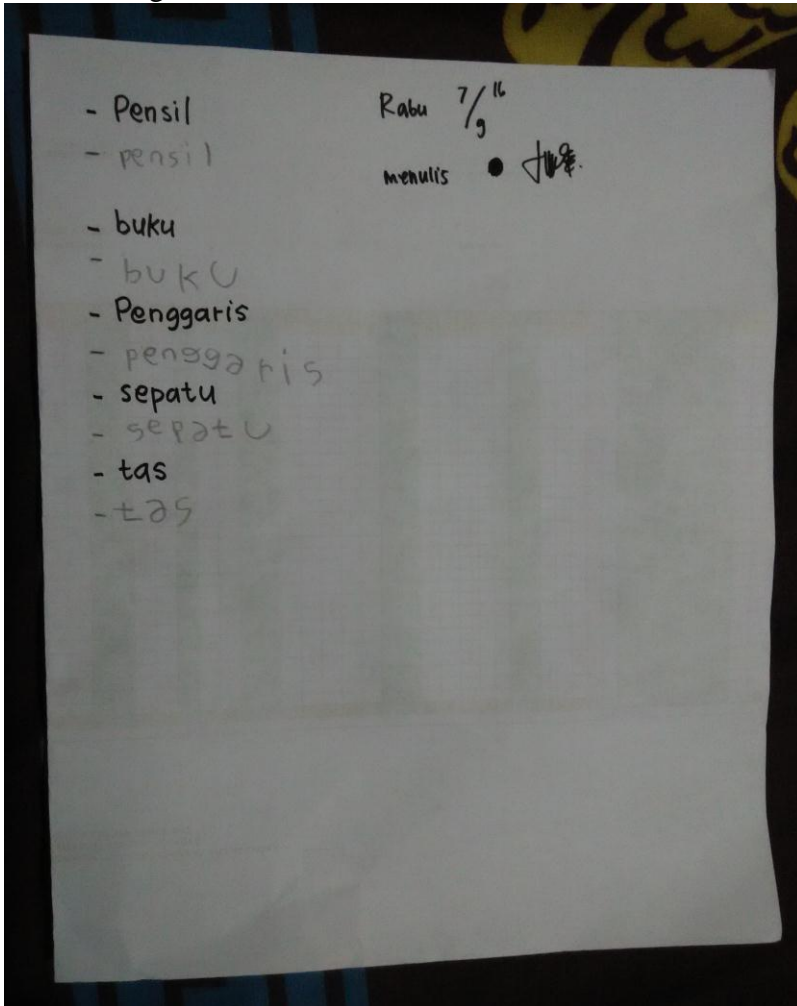 - Pensil
- pensil
- buku
- buku
- Penggaris
- penggaris
- sepatu
- sepatu
- tas
- tas
Rabu 7/9 16
menulis